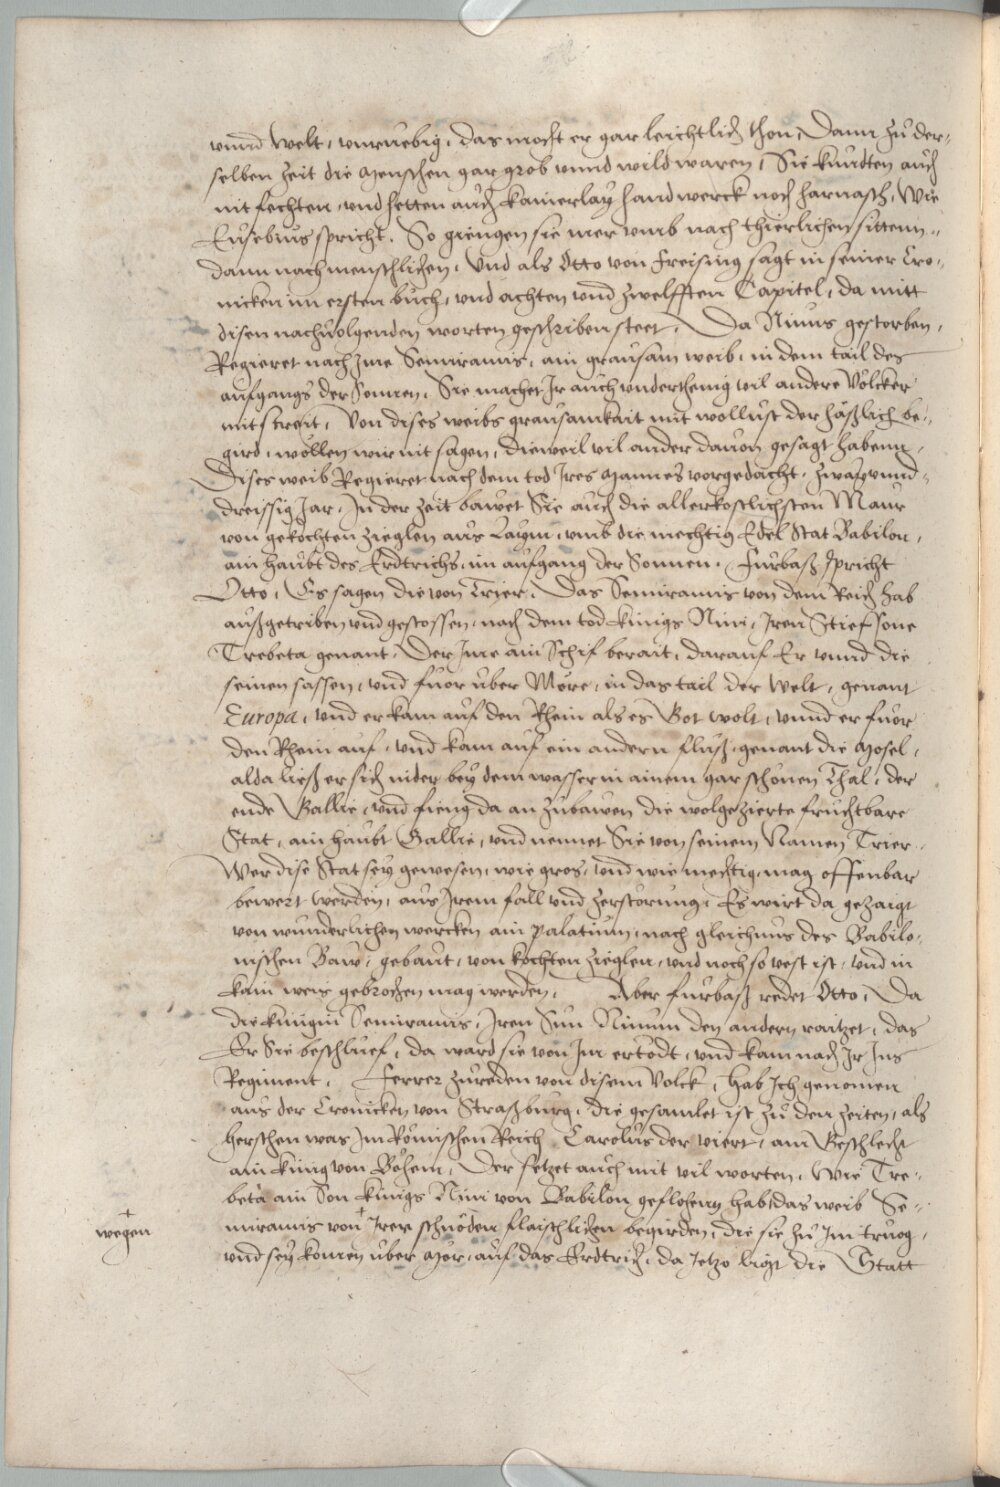 vnnd welt, vnruebig, das mocht er gar leichtlich thon, Dann zu der-
selben zeit die menschen gar grob vnnd wild waren, Sie kundten auch
nit fechten, vnd hetten auch kainerlay handwerck noch harnasch, Wie
Eusebius spricht. So giengen sie mer vmb nach thierlichen sittenn,
dann nach menschlichen, Vnd als Otto von Freising sagt in seiner Cro-
nicken im ersten buch, vnd achten vnd zwelfften Capitel, da mitt
disen nachuolgenden worten geschriben steet, Da Ninus gestorben,
Regieret nach Ime Semiramis, ain grausam weib, in dem tail des
aufgangs der Sonnen, Sie machet Ir auch vnderthenig vil andere Völcker
mit streit, Von dises weibs grausamkait mit wollust der häßlich be-
gird, wöllen wir nit sagen, dieweil vil ander dauon gesagt habenn,
Dises weib Regieret nach dem tod Ires mannes vorgedacht, zway vnnd
dreissig Jar, In der zeit bawet Sie auch die allerkostlichsten Maur
von gekochten zieglen aus Laym, vmb die mechtig Edel Stat Babilon,
ain haubt des Erdtrichs, im aufgang der Sonnen. Fürbaß spricht
Otto, Es sagen die von Trier, Das Semiramis von dem Reich hab
außgetriben vnd gestossen, nach dem tod künigs Nini, Iren Stiefsone
Trebeta genant, Der Ime ain Schif berait, darauf Er vnnd die
seinen sassen, vnd fuor über Möre, in das tail der Welt, genant
Europa, vnd er kam auf den Rhein als es Got wolt, vnnd er fuor
den Rhein auf, vnd kam auf ein andern fluß, genant die Mosel,
alda ließ er sich nider bey dem wasser in ainem gar schönen Thal, der
ende Gallie, vnd fieng da an zubawen die wolgezierte fruchtbare
Stat, ain haubt Gallie, vnd nennet Sie von seinem Namen Trier.
Wer dise Stat sey gewesen, wie gros, vnd wie mechtig, mag offenbar
bewert werden, aus Irem fall vnd zerstörung, Es wirt da gezaigt
von wunderlichen wercken ain palatium, nach gleichnus des Babilo-
nischen Baw, gebaut, von kochten zieglen, vnd noch so vest ist, vnd in
kain weis gebrochen mag werden, Aber fürbaß redet Otto, Da
die künigin Semiramis, Iren Sun Ninum den andern raitzet, das
Er Sie beschlief, da ward sie von Im ertödt, vnd kam nach Ir Ins
Regiment, Ferrer zureden von disem Volck, hab Ich genomen
aus der Cronicken von Straßburg, die gesamlet ist zu den zeiten, als
herschen was Im Römischen Reich Carolus der viert, am Geschlecht
ain künig von Böhem, Der setzet auch mit vil worten, Wie Tre-
beta ain Son künigs Nini von Babilon geflohenn hab, das weib Se-
miramis von + Irer schnöden flaischlichen begirden, die sie zu Im truog,
+
wegen
vnd sey komen über mör, auf das Erdtrich, da Jetzo ligt die Statt